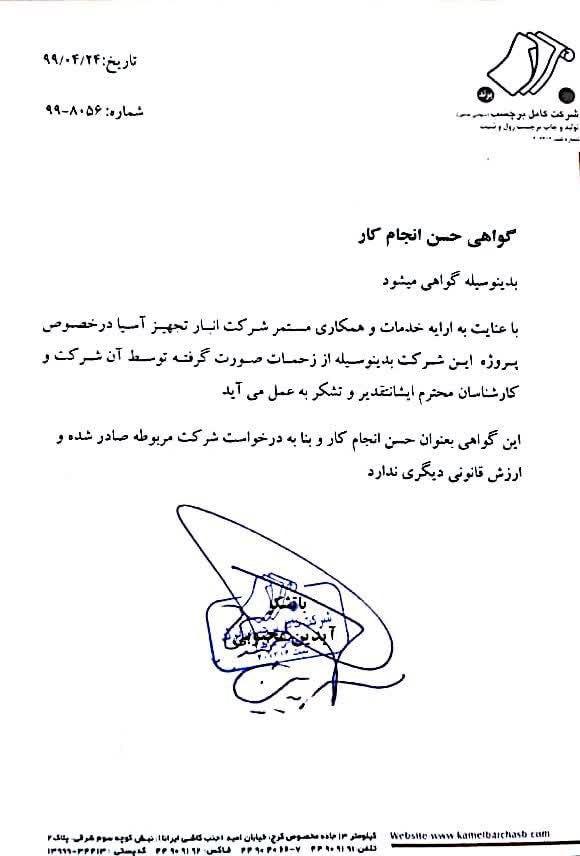 تاریخ: ۹۹/۰۴/۲۴
شماره: ۸۰۵۶-۹۹
برند
شرکت کامل برچسب
تولید و چاپ برچسب رول و شیت
گواهی حسن انجام کار
بدینوسیله گواهی میشود
با عنایت به ارایه خدمات و همکاری مستمر شرکت انبار تجهیز آسیا درخصوص
پروژه این شرکت بدینوسیله از زحمات صورت گرفته توسط آن شرکت و
کارشناسان محترم ایشانتقدیر و تشکر به عمل می آید
این گواهی بعنوان حسن انجام کار و بنا به درخواست شرکت مربوطه صادر شده و
ارزش قانونی دیگری ندارد
باتشکر
آیدین
کیلومتر ۱۳ جاده مخصوص کرج، خیابان امید (جنب کاشی ایرانا)، نبش کوچه سوم شرقی، پلاک ۲
Website www.kamelbarchasb.com
تلفن: ۴۴۹۰۹۱۹۱ ۷-۴۴۹۰۴۰۶۶ فاکس: ۴۴۹۰۹۱۹۲ کدپستی: ۳۴۴۱۳-۱۳۹۹۹